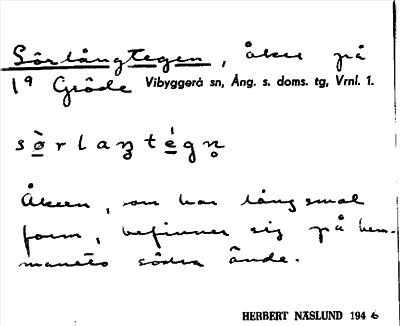 Sörlångtegen, åker på
1⁹ Gröde Vibyggerå sn, Ång. s. doms. tg, Vrnl. 1.
sø̀rlaŋtégn̥
Åkern, som har lång smal
form, befinner sig på hem-
manets södra ände.
HERBERT NÄSLUND 1946